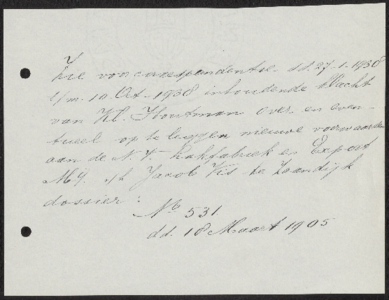 Zie voor correspondentie dd. 27-1-1938
t/m. 10 Oct. 1938 inhoudende klacht
van Kl. Houtman over en even-
tueel op te leggen nieuwe voorwaarden
aan de N.V. Kalkfabriek en Export
Mij. v/h Jacob Vis te Zaandijk
dossier:
No 531
dd. 18 Maart 1905